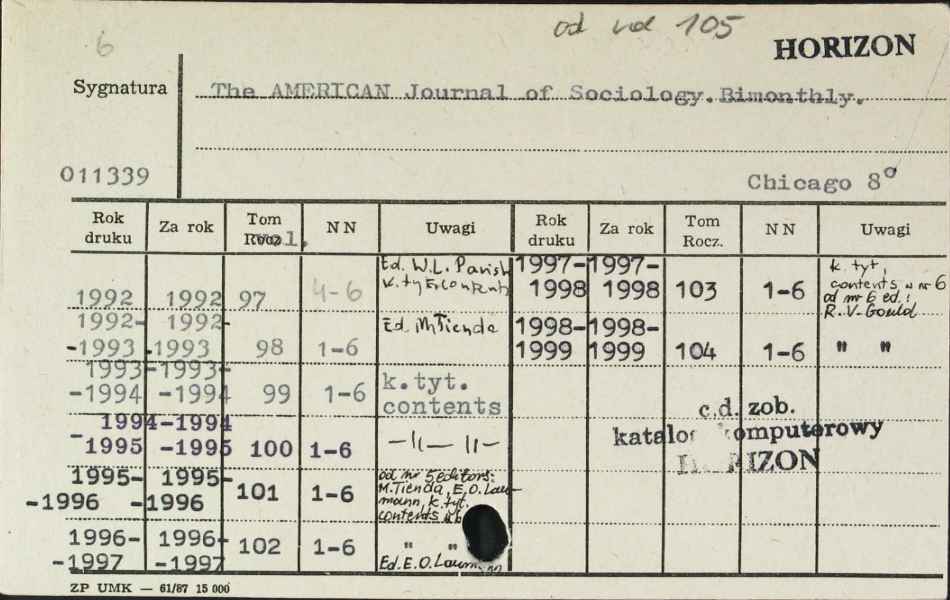 6
od vol 105
HORIZON
Sygnatura
The AMERICAN Journal of Sociology. Bimonthly.
011339
Chicago 8°
Rok druku Za rok Tom Rocz. vol. N N Uwagi Rok druku Za rok Tom Rocz. N N Uwagi
1992 1992 97 4-6 Ed. W.L. Parish
k. tyt contents
1992- 1992-
-1993 -1993 98 1-6 Ed. M Tienda
1993- 1993-
-1994 -1994 99 1-6 k.tyt.
contents
1994 -1994
-1995 -1995 100 1-6 —||— ||—
1995- 1995-
-1996 -1996 101 1-6 od nr 5 editors:
M. Tienda, E.O. Lau-
mann, k. tyt.
contents
1996- 1996-
-1997 -1997 102 1-6 " "
Ed. E.O. Laumann
1997- 1997-
1998 1998 103 1-6 k. tyt,
contents w nr 6
od nr 6 ed.:
R.V. Gould
1998- 1998-
1999 1999 104 1-6 " "
c.d. zob.
katalog komputerowy
HORIZON
ZP UMK — 61/87 15 000